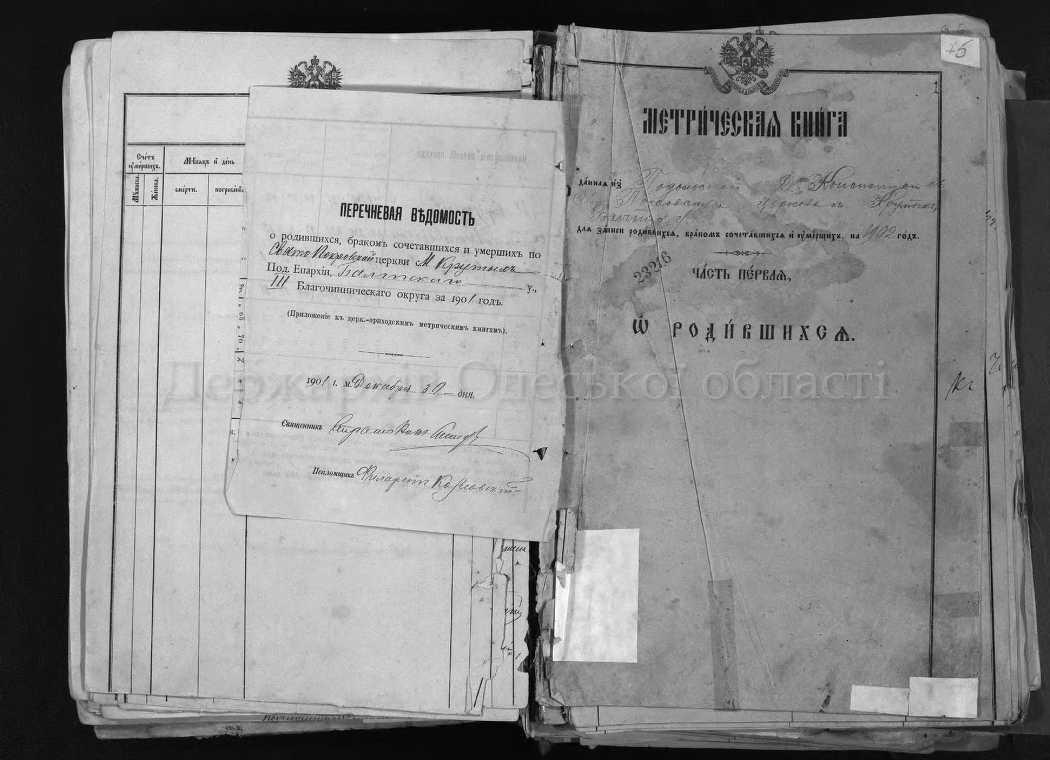 Счетъ умершихъ.
Мѣсяцъ и день
Мужеска.
Женска.
смерти.
погребенія.
ПЕРЕЧНЕВАЯ ВѢДОМОСТЬ
о родившихся, бракомъ сочетавшихся и умершихъ по
Свято Покровской церкви м. Крутыхъ
Под. Епархіи, Балтскаго у.,
III Благочинническаго округа за 1901 годъ.
(Приложеніе къ церк.-приходскимъ метрическимъ книгамъ).
1901 г. м. Декабря 30 дня.
Священникъ
Псаломщикъ Филаретъ Козловскій
75
1
МЕТРИ́ЧЕСКАЯ КНИ́ГА
данная изъ Подольской Дх. Консисторіи въ
Покровскую церковь м. Крутыхъ,
для записи родившихся, бракомъ сочетавшихся и умершихъ, на 1902 годъ.
23216
ЧА́СТЬ ПЕ́РВАЯ,
Ѡ РОДИ́ВШИХСЯ.
Держархів Одеської області